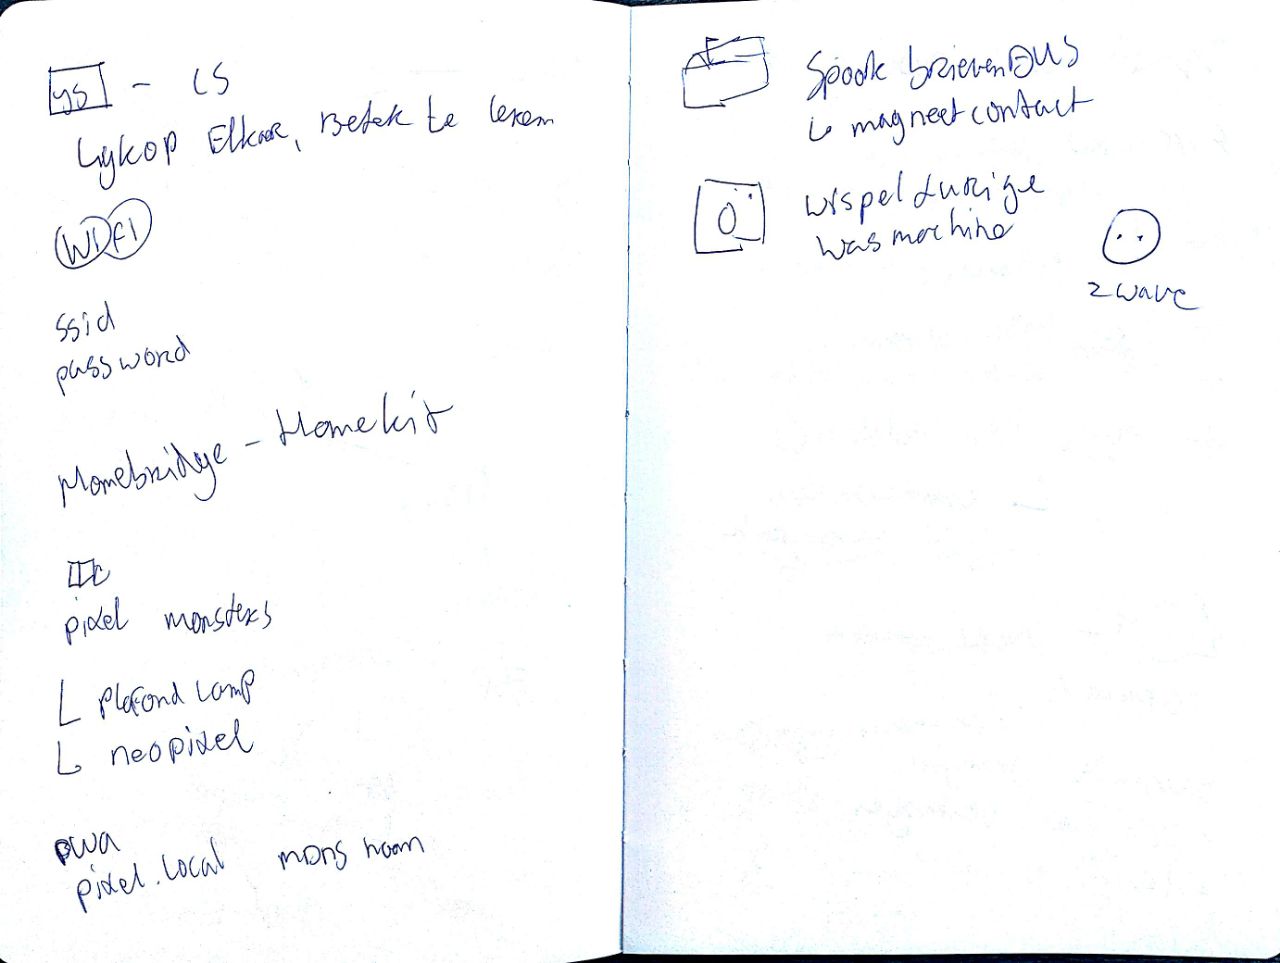 js - CS
Lijkop Elkaar, Beter te leren
WiFi
ssid
password
Homebridge - Homekit
pixel monsters
plafond lamp
neopixel
pwa
pixel.local mdns naam
Spook brievenbus
magneetcontact
wispelturige
wasmachine
zwave